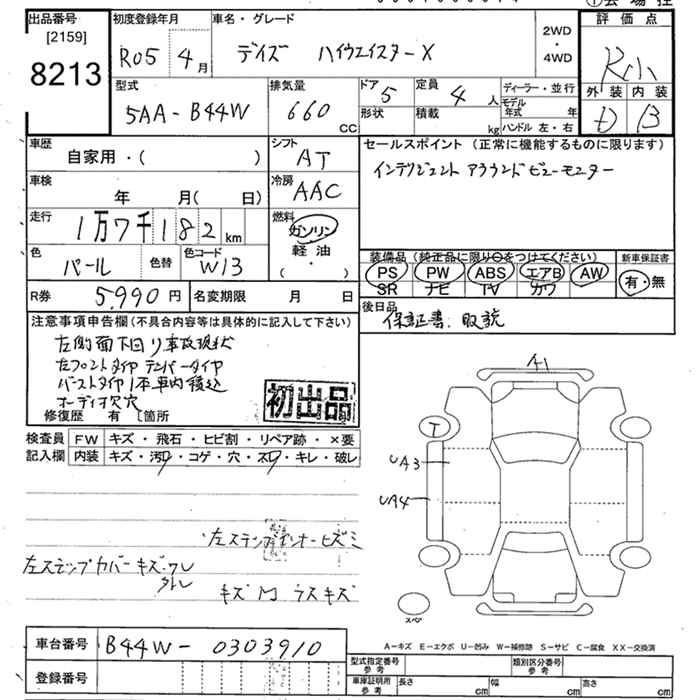 ①会場控
出品番号 初度登録年月 車名・グレード 評価点
[2159]
8213
R05 4月 デイズ ハイウエイスターX 2WD・4WD R小
型式 排気量 ドア 5 定員 4人 ディーラー・並行 外装 内装
5AA-B44W 660CC 形状 積載 kg モデル年式 年 ハンドル 左・右 D B
車歴 シフト セールスポイント (正常に機能するものに限ります)
自家用・( ) AT インテリジェント アラウンドビューモニター
車検 冷房
年 月( 日) AAC
走行 燃料
1万7千182km ガソリン
軽油
・
( )
色 色替 色コード 装備品(純正品に限り○をつけてください) 新車保証書
パール W13 PS PW ABS エアB AW 有・無
SR ナビ TV カワ
R券 5.990円 名変期限 月 日 後日品
保証書. 取説
注意事項申告欄(不具合内容等は具体的に記入して下さい)
左側面下回り事故現状
左フロントタイヤ テンパータイヤ
バーストタイヤ1本車内積込
オーディオ欠穴
修復歴 有 〔箇所
初出品
検査員 FW キズ・飛石・ヒビ割・リペア跡・×要
記入欄 内装 キズ・汚レ・コゲ・穴・スレ・キレ・破レ
A1
T
UA3
UA4
スペア
左ステップインナーヒズミ
左ステップカバーキズ・ワレ
外レ
キズ 凹 ラスキズ
車台番号 B44W-0303910
A-キズ E-エクボ U-凹み W-補修跡 S-サビ C-腐食 XX-交換済
登録番号
型式指定番号 参考 類別区分番号 参考
車庫証明用 参考 長さ cm 幅 cm 高さ cm